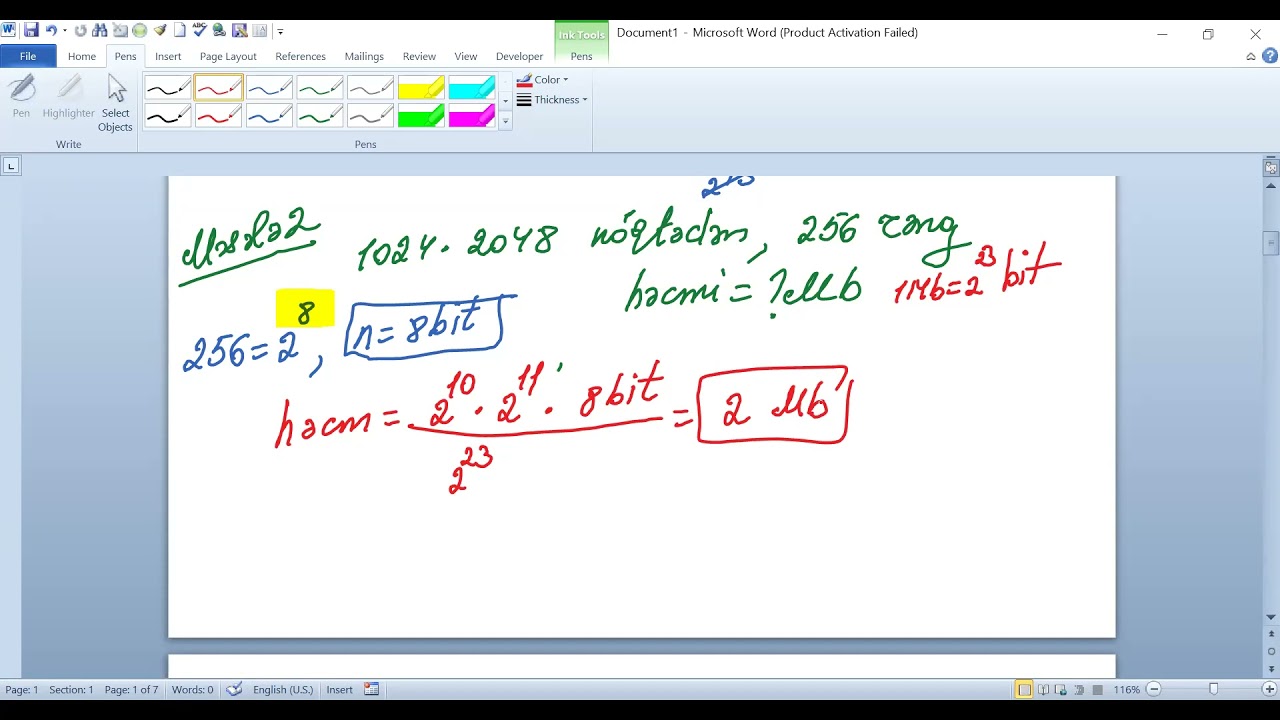 Document1 - Microsoft Word (Product Activation Failed)
Ink Tools
File Home Pens Insert Page Layout References Mailings Review View Developer Pens
Pen Highlighter Select Objects
Color
Thickness
Write Pens
Məsələ2 1024 · 2048 nöqtədən, 256 rəng
həcmi = ? Mb 1Mb=2^23 bit
256=2^8, n=8bit
həcm = 2^10 · 2^11 · 8bit / 2^23 = 2 Mb
Page: 1 Section: 1 Page: 1 of 7 Words: 0 English (U.S.) Insert 116%